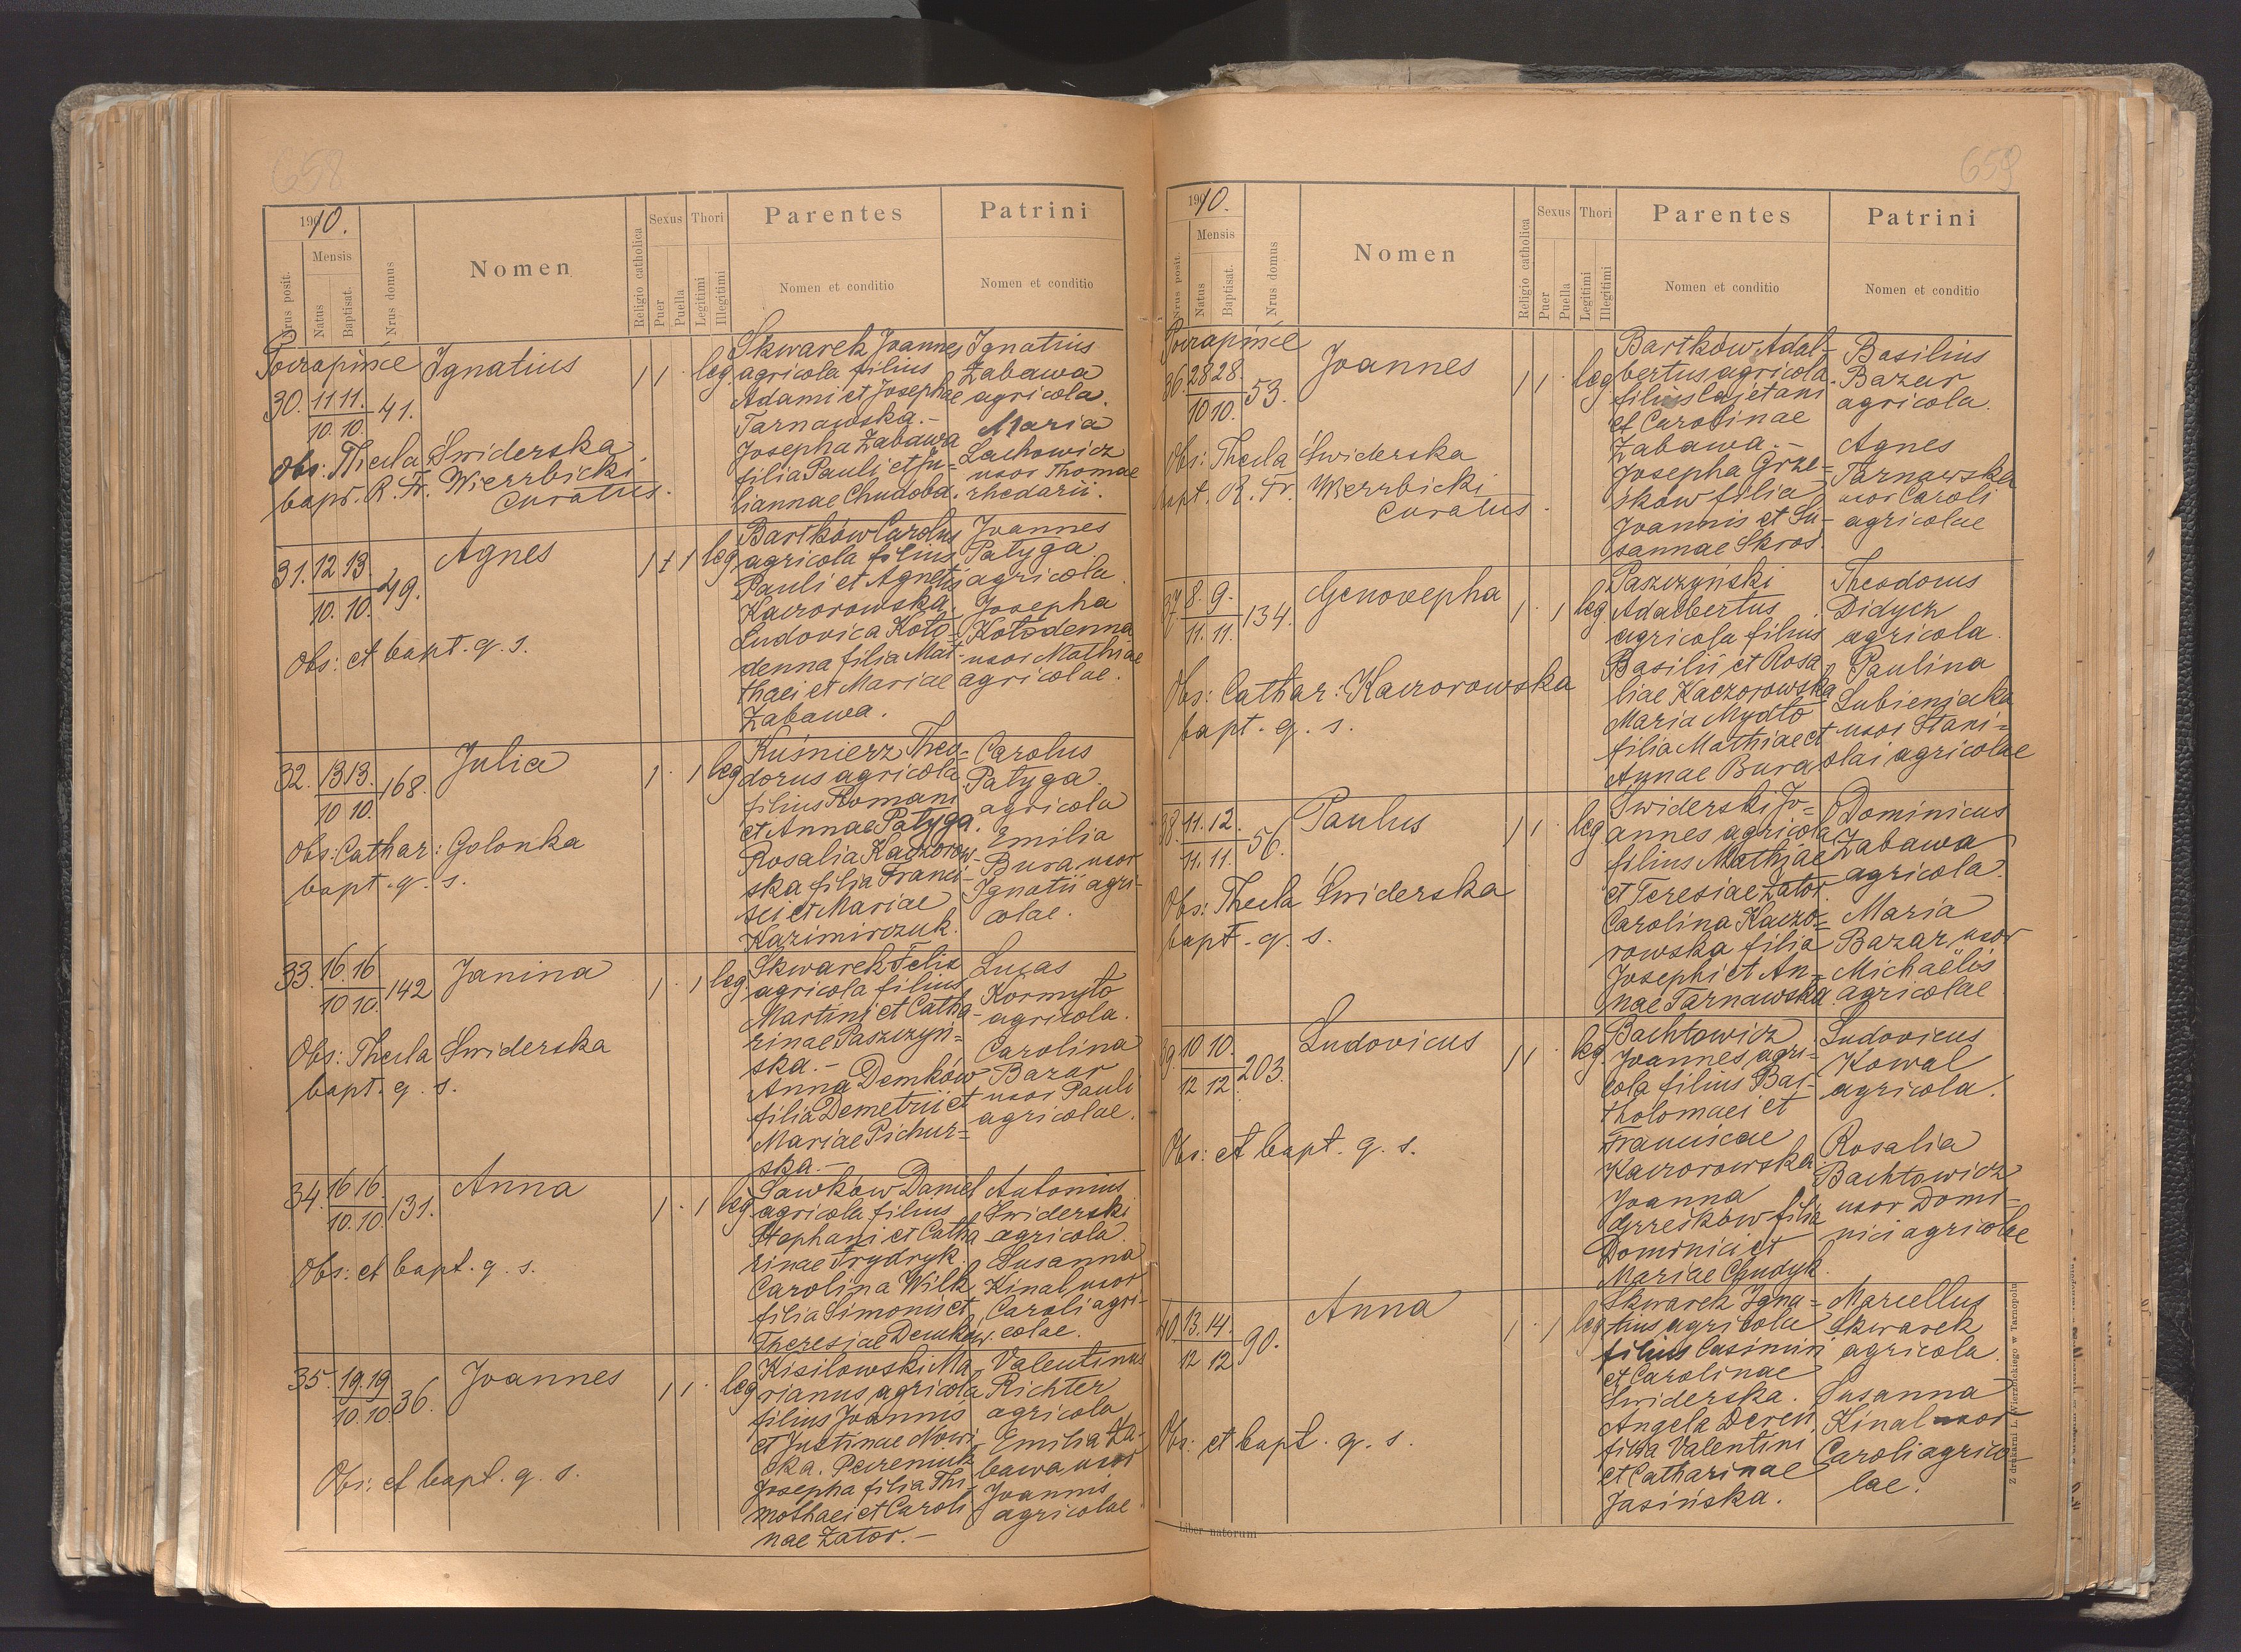 658
1910.
Nrus posit.
Mensis
Natus
Baptisat.
Nrus domus
Nomen
Religio catholica
Sexus
Puer
Puella
Thori
Legitimi
Illegitimi
Parentes
Nomen et conditio
Patrini
Nomen et conditio
30. 11 11. 41.
10. 10.
Ignatius
1 1 · leg.
Skwarek Joannes
agricola filius
Adami et Josephae
Tarnawska.-
Josepha Zabawa
filia Pauli et Ju-
liannae Chudoba.
Ignatius
Zabawa
agricola.
Maria
Lachowicz
uxor Thomae
rhedarii.
Obs: Thecla Świderska
bapt. R. Fr. Wierzbicki
Curatus.
31. 12 13. 49.
10. 10.
Agnes
1 1 leg
Bartków Carolus
agricola filius
Pauli et Agnetis
Kaczorowska.
Ludovica Koło-
denna filia Mat-
thaei et Mariae
Zabawa.
Joannes
Patyga
agricola.
Josepha
Kołodenna
uxor Mathiae
agricolae.
Obs: et bapt. q. s.
32. 13 13. 168.
10 10.
Julia
1 · 1 leg
Kuśnierz Theo-
dorus agricola
filius Romani
et Annae Patyga.
Rosalia Kaczorow-
ska filia Franci-
sci et Mariae
Kazimirczuk.
Carolus
Patyga
agricola
Emilia
Bura uxor
Ignatii agri-
colae.
Obs: Cathar: Golonka
bapt. q. s.
33. 16. 16. 142
10 10.
Janina
1 · 1 leg.
Skwarek Felix
agricola filius
Martini et Catha-
rinae Paszczyń-
ska.-
Anna Demków
filia Demetrii et
Mariae Pichur-
ska.-
Lucas
Kormyło
agricola.
Carolina
Bazar
uxor Pauli
agricolae.
Obs: Thecla Świderska
bapt. q. s.
34. 16 16. 131.
10. 10.
Anna
1 · 1 leg
Sawków Daniel
agricola filius
Stephani et Catha
rinae Frydryk.
Carolina Wilk
filia Simonis et
Theresiae Demków.
Antonius
Świderski
agricola.
Susanna
Kinal uxor
Caroli agri-
colae.
Obs: et bapt. q. s.
35. 19. 19 36.
10. 10.
Joannes
1 1 · leg
Kisilowski Ma-
rianus agricola
filius Joannis
et Justinae Nowi-
cka.
Josepha filia Thi-
mothaei et Caroli-
nae Zator.-
Valentinus
Richter
agricola
Emilia Za-
bawa uxor
Joannis
agricolae
Obs: et bapt. q. s.
659
1910.
Nrus posit.
Mensis
Natus
Baptisat.
Nrus domus
Nomen
Religio catholica
Sexus
Puer
Puella
Thori
Legitimi
Illegitimi
Parentes
Nomen et conditio
Patrini
Nomen et conditio
36. 28 28. 53.
10 10.
Joannes
1 1 · leg
Bartków Adal-
bertus agricola
filius Cajetani
et Carolinae
Zabawa.-
Josepha Grze-
śków filia
Joannis et Su-
sannae Skrod.
Basilius
Bazar
agricola.
Agnes
Tarnawska
uxor Caroli
agricolae
Obs: Thecla Świderska
bapt. R. Fr. Wierzbicki
Curatus.
37 8. 9. 134.
11. 11.
Genovepha
1 · 1 leg
Paszczyński
Adalbertus
agricola filius
Basilii et Rosa-
liae Kaczorowska
Maria Mydło
filia Mathiae et
Annae Bura
Theodorus
Didycz
agricola.
Paulina
Lubieniecka
uxor Stani-
slai agricolae
Obs: Cathar: Kaczorowska
bapt. q. s.
38. 11. 12. 56.
11. 11.
Paulus
1 1 · leg
Świderski Jo-
annes agricola
filius Mathiae
et Teresiae Zator.
Carolina Kaczo-
rowska filia
Josephi et An-
nae Tarnawska
Dominicus
Zabawa
agricola.
Maria
Bazar uxor
Michaëlis
agricolae
Obs: Thecla Świderska
bapt. q. s.
39. 10 10. 203.
12 12.
Ludovicus
1 1 · leg.
Bachtowicz
Joannes agri-
cola filius Bar-
tholomaei et
Franciscae
Kaczorowska
Joanna
Grześków filia
Dominici et
Mariae Chudyk.
Ludovicus
Kowal
agricola.
Rosalia
Bachtowicz
uxor Domi-
nici agricolae
Obs: et bapt. q. s.
40 13. 14. 90.
12 12
Anna
1 · 1 leg
Skwarek Igna-
tius agricola
filius Casimiri
et Carolinae
Świderska.
Angela Dereń
filia Valentini
et Catharinae
Jasińska.
Marcellus
Skwarek
agricola.
Susanna
Kinal uxor
Caroli agrico-
lae.
Obs: et bapt. q. s.
Liber natorum
Z drukarni L. Wierzbickiego w Tarnopolu